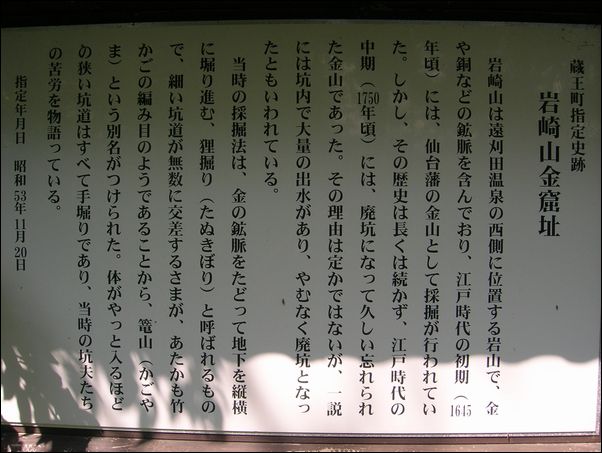 蔵王町指定史跡
岩崎山金窟址
岩崎山は遠刈田温泉の西側に位置する岩山で、金
や銅などの鉱脈を含んでおり、江戸時代の初期（1645
年頃）には、仙台藩の金山として採掘が行われてい
た。しかし、その歴史は長くは続かず、江戸時代の
中期（1750年頃）には、廃坑になって久しい忘れられ
た金山であった。その理由は定かではないが、一説
には坑内で大量の出水があり、やむなく廃坑となっ
たともいわれている。
当時の採掘法は、金の鉱脈をたどって地下を縦横
に掘り進む、狸掘り（たぬきぼり）と呼ばれるもの
で、細い坑道が無数に交差するさまが、あたかも竹
かごの編み目のようであることから、篭山（かごや
ま）という別名がつけられた。体がやっと入るほど
の狭い坑道はすべて手堀りであり、当時の坑夫たち
の苦労を物語っている。
指定年月日　昭和53年11月20日